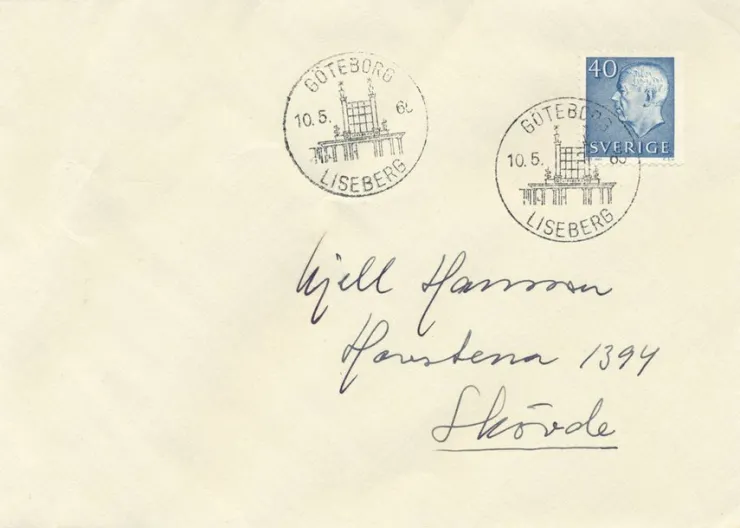 GÖTEBORG
10.5. 65
LISEBERG
40
SVERIGE
GÖTEBORG
10.5. 65
LISEBERG
Kjell Hansson
Havstena 1394
Skövde